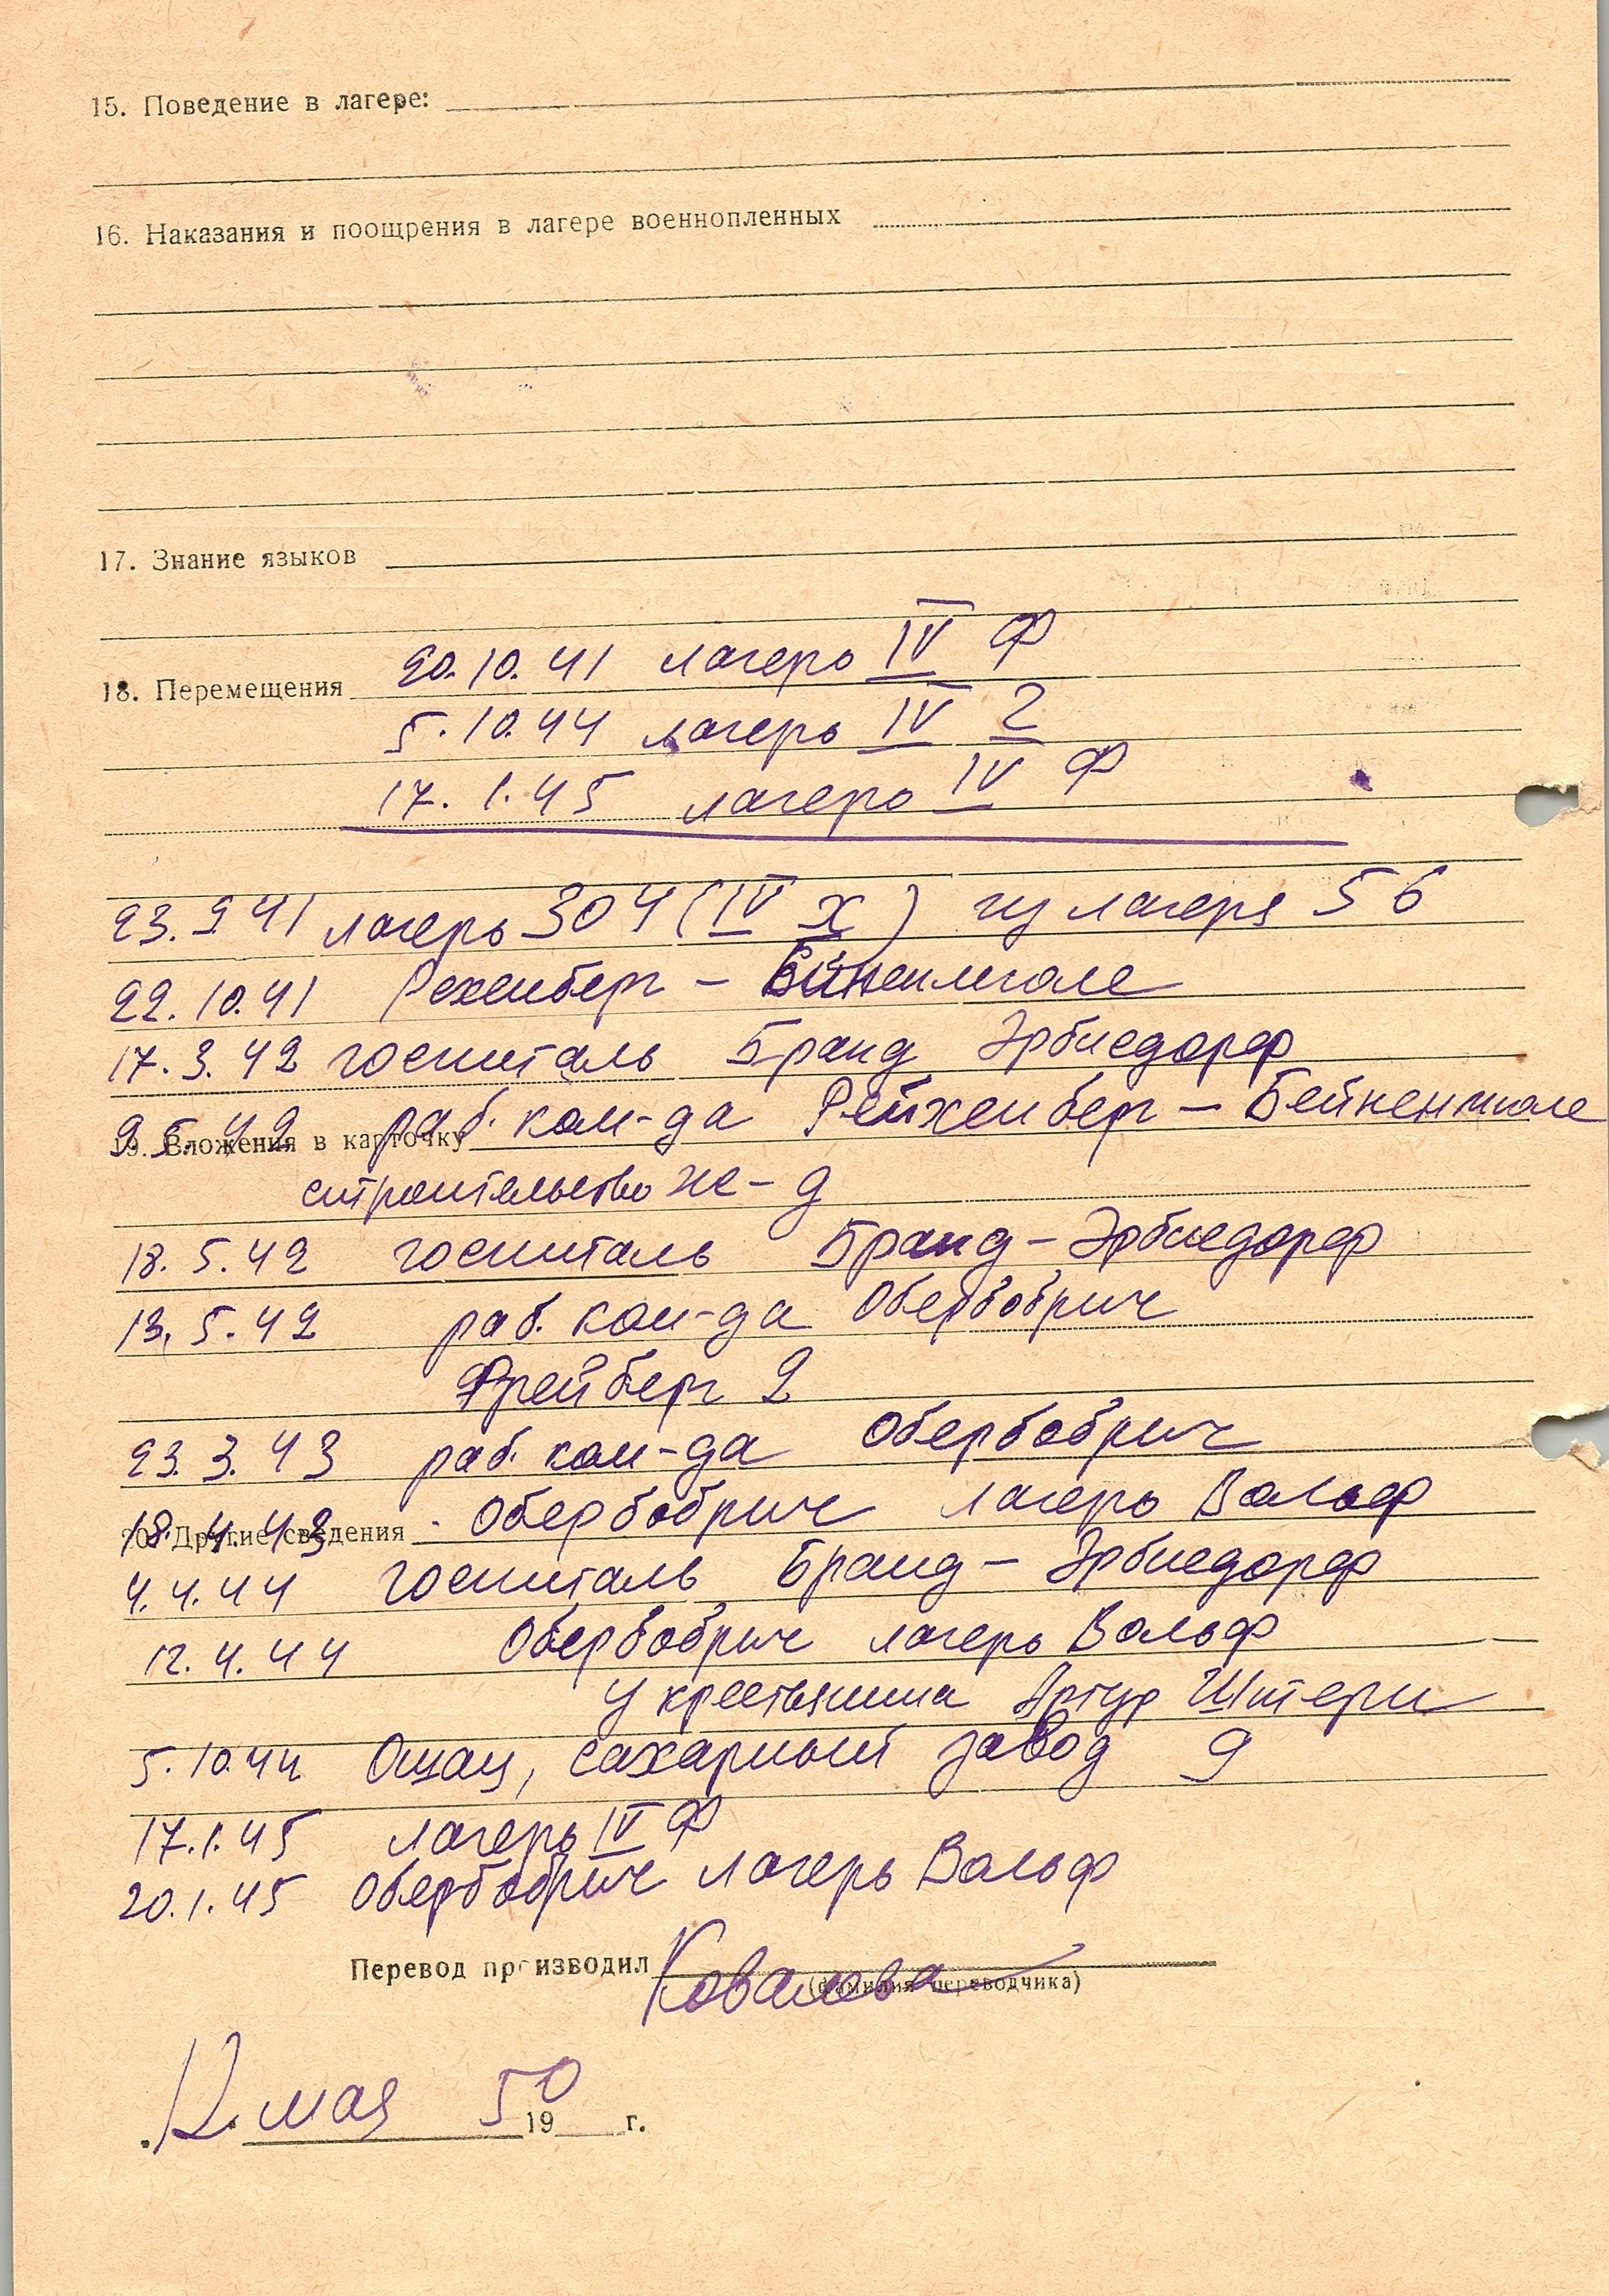 15. Поведение в лагере:
16. Наказания и поощрения в лагере военнопленных
17. Знание языков
20.10.41 лагерь IV Ф
18. Перемещения
5.10.44 лагерь IV Г
17.1.45 лагерь IV Ф
23.9.41 лагерь 304 (IV Х) из лагеря 56
22.10.41 Рехенберг – Биненмюле
17.3.42 госпиталь Бранд Эрбисдорф
9.5.42 раб. ком-да Рейхенберг – Бейненмюле
19. Вложения в карточку
строительство ж-д
18.5.42 госпиталь Бранд – Эрбисдорф
13.5.42 раб. ком-да Обербобрич
Фрейберг 2
23.3.43 раб. ком-да Обербобрич
18.4.43 Обербобрич лагерь Вольф
20. Другие сведения
4.4.44 госпиталь Бранд – Эрбисдорф
12.4.44 Обербобрич лагерь Вольф
у крестьянина Артур Штерн
5.10.44 Ошац, сахарный завод 9
17.1.45 лагерь IV Ф
20.1.45 Обербобрич лагерь Вольф
Перевод производил Ковалева
(фамилия переводчика)
12 мая 1950 г.